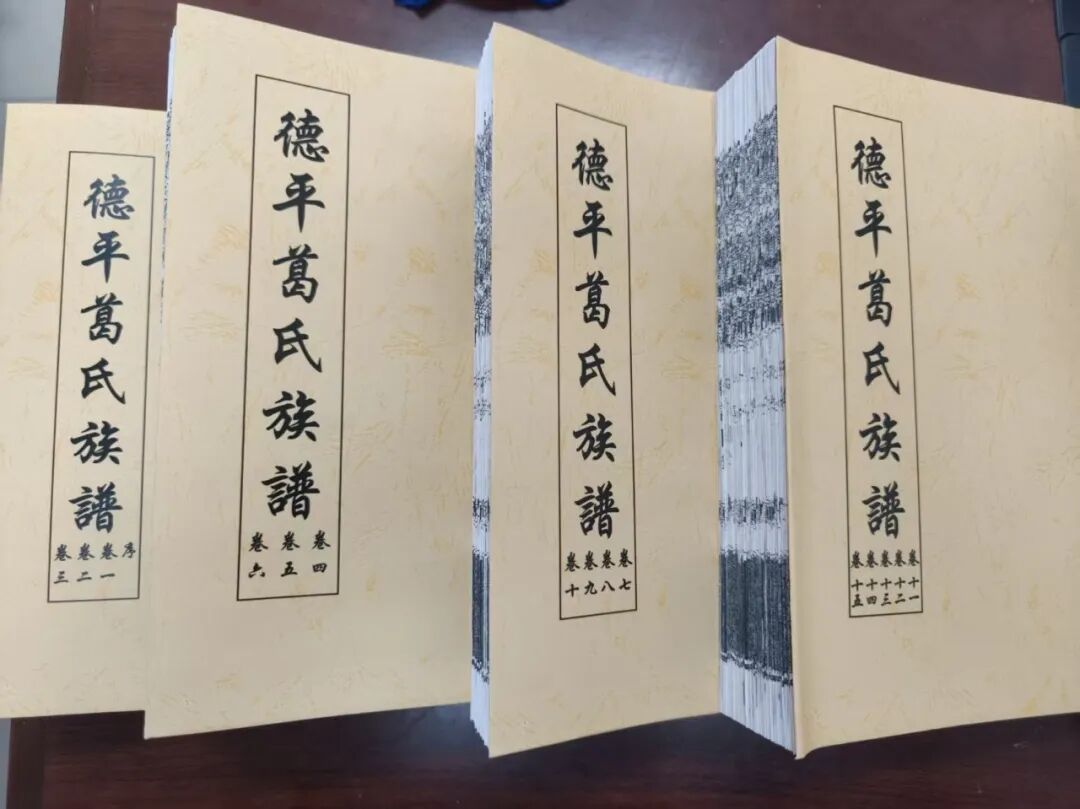 德平葛氏族譜
序
卷一
卷二
卷三
德平葛氏族譜
卷四
卷五
卷六
德平葛氏族譜
卷七
卷八
卷九
卷十
德平葛氏族譜
卷十一
卷十二
卷十三
卷十四
卷十五